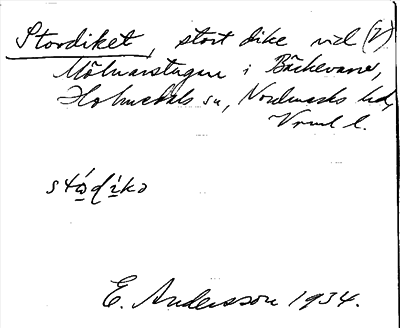 Stordiket, stort dike vid (2)
Mölnarstugan i Bäckevarv,
Holmedals sn, Nordmarks hd,
Vrml l.
stọ́dịkə
E. Andersson 1934.